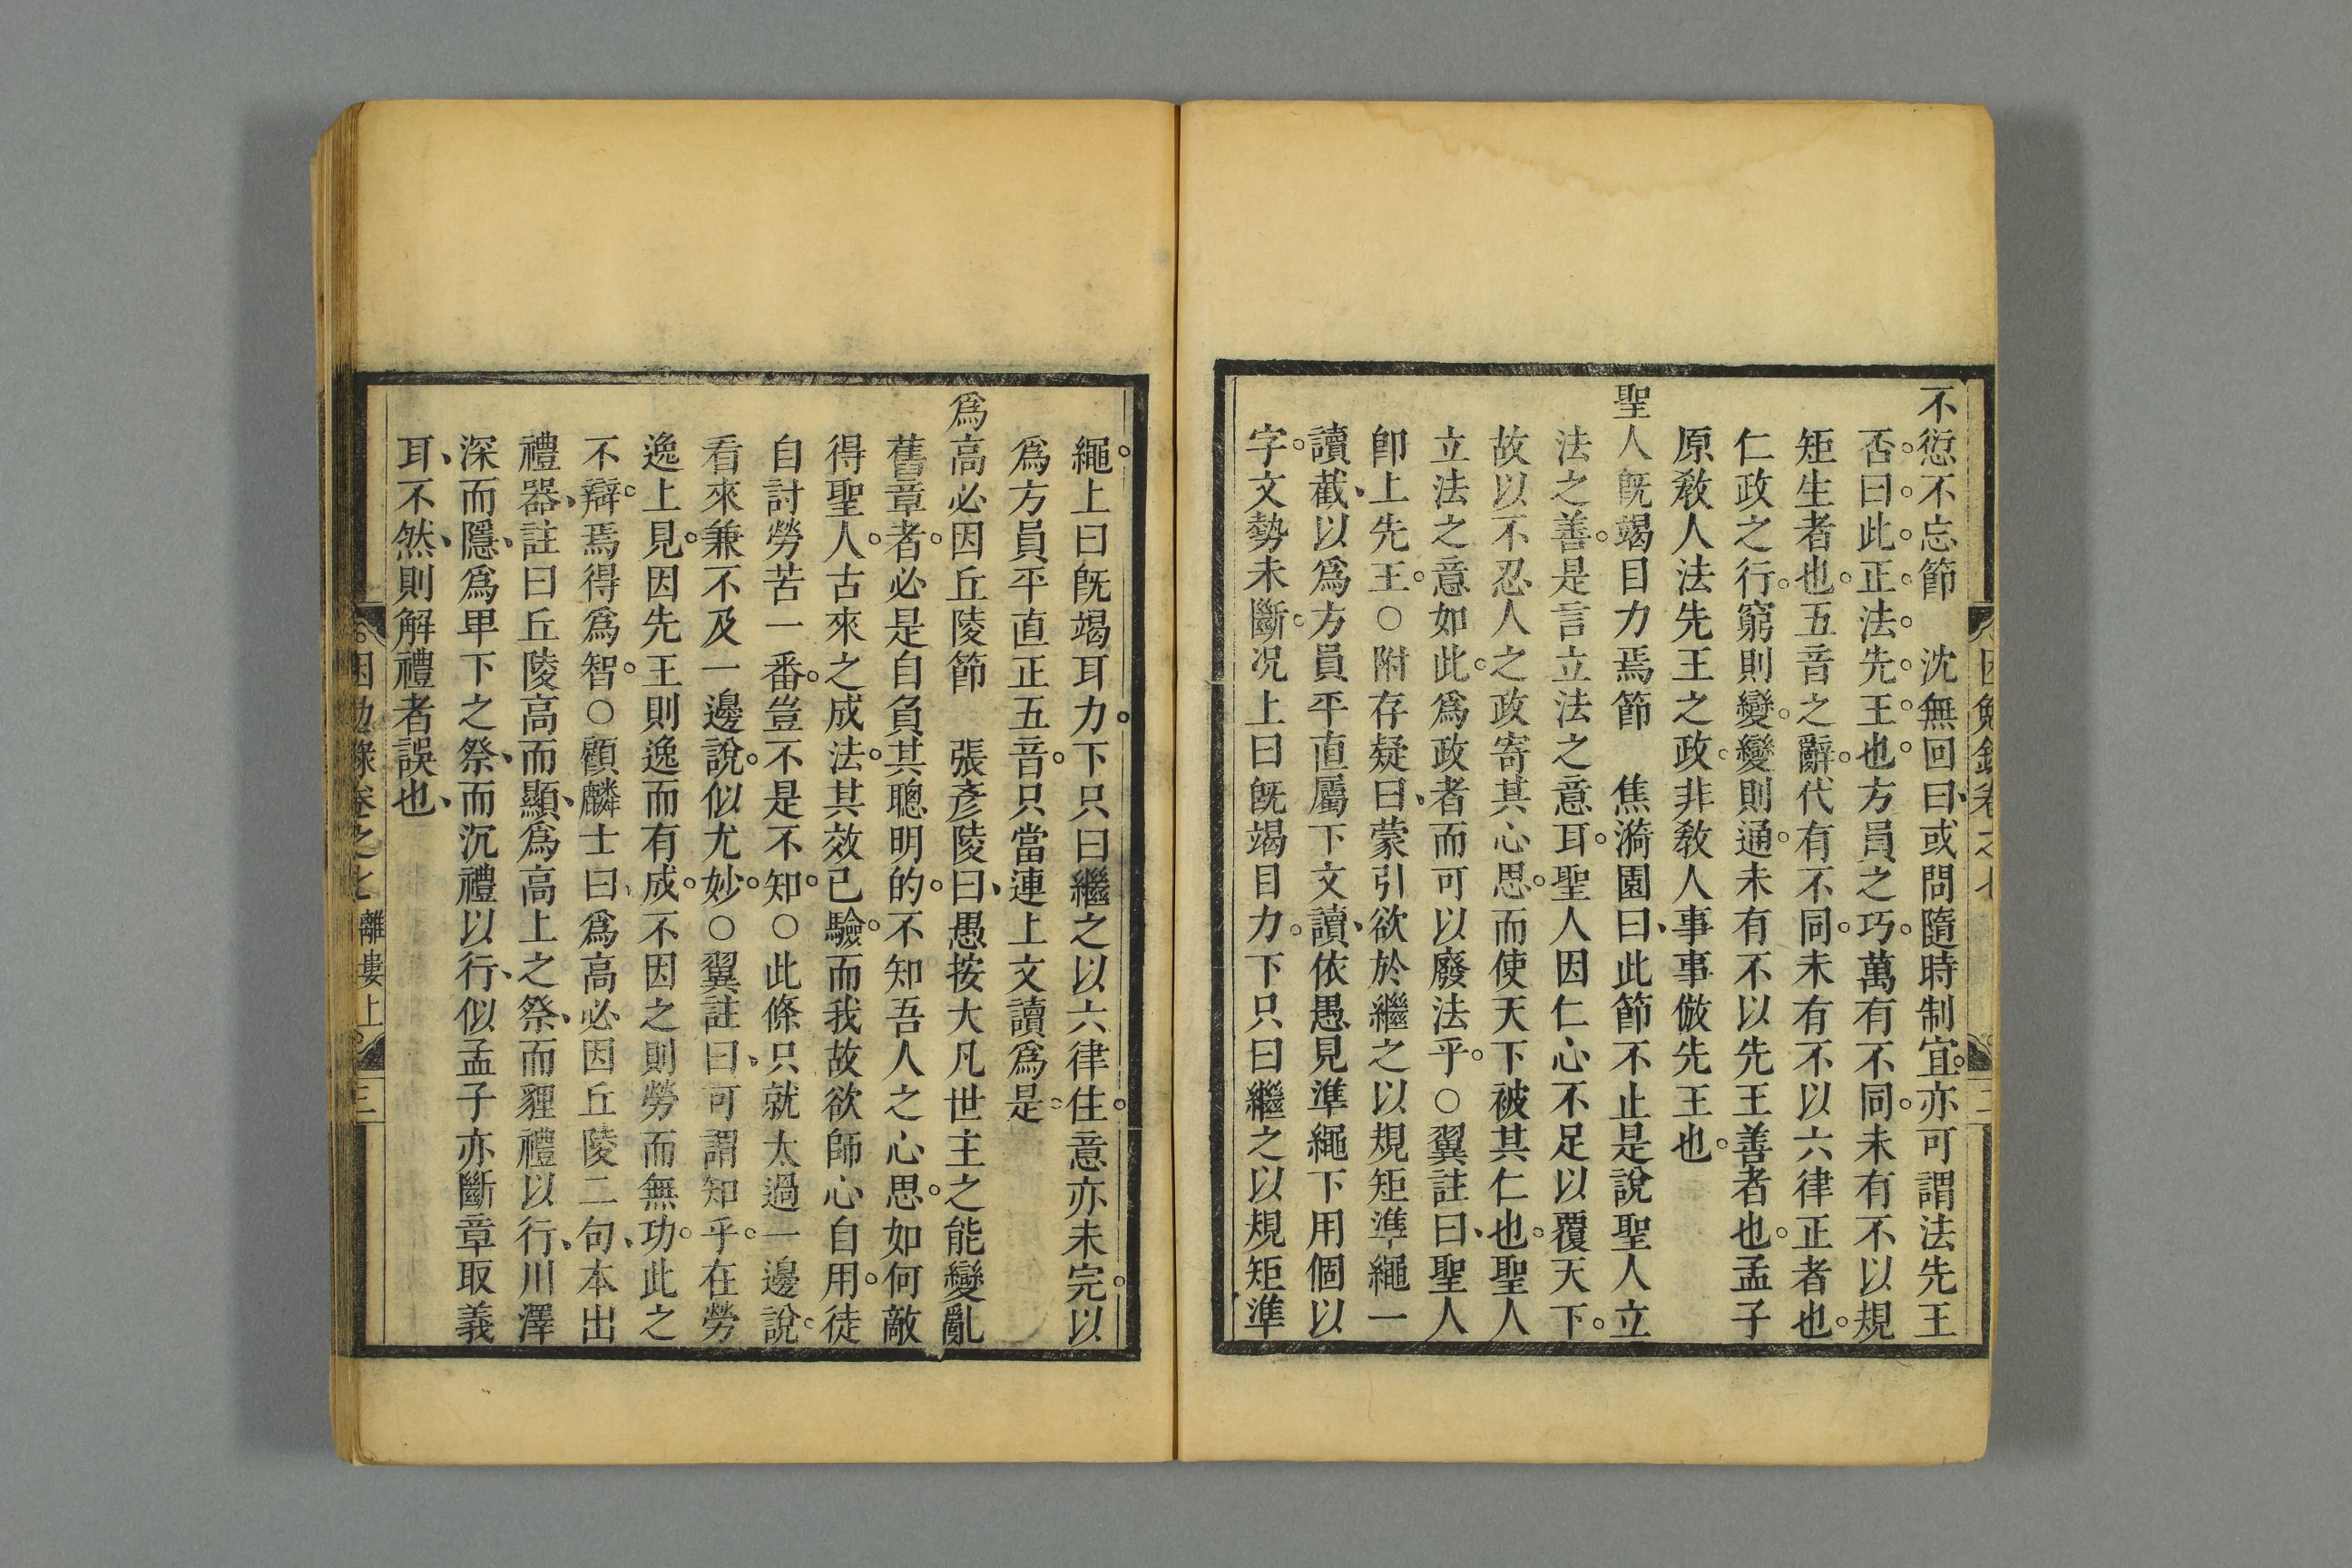 不愆不忘節　沈無回曰、或問隨時制宜。亦可謂法先王
否。曰。此。正。法。先。王。也。方員之巧。萬有不同。未有不以規
矩生者也。五音之辭。代有不同。未有不以六律正者也。
仁政之行。窮則變。變則通。未有不以先王善者也。孟子
原教人法先王之政。非教人事事倣先王也。
聖人既竭目力焉節　焦漪園曰、此節不止是說聖人立
法之善。是言立法之意耳。聖人因仁心不足以覆天下。
故以不忍人之政寄其心思。而使天下被其仁也。聖人
立法之意如此。爲政者而可以廢法乎。○翼註曰、聖人
卽上先王。○附存疑曰、蒙引欲於繼之以規矩準繩一
讀截、以爲方員平直屬下文讀、依愚見準繩下用個以
字。文勢未斷。况上曰旣竭目力。下只曰繼之以規矩準
繩。上曰旣竭耳力。下只曰繼之以六律住。意亦未完。以
爲方員平直正五音。只當連上文讀爲是。
爲高必因丘陵節　張彥陵曰、愚按大凡世主之能變亂
舊章者。必是自負其聰明的。不知吾人之心思。如何敵
得聖人。古來之成法。其效已驗。而我故欲師心自用。徒
自討勞苦一番。豈不是不知。○此條只就太過一邊說。
看來兼不及一邊說。似尤妙。○翼註曰、可謂知乎。在勞
逸上見。因先王則逸而有成。不因之則勞而無功。此之
不辯。焉得爲智。○顧麟士曰、爲高必因丘陵二句、本出
禮器、註曰丘陵高而顯、爲高上之祭、而貍禮以行、川澤
深而隱、爲甲下之祭、而沉禮以行、似孟子亦斷章取義
耳、不然、則解禮者誤也、
因勉錄卷之七　離婁上　三